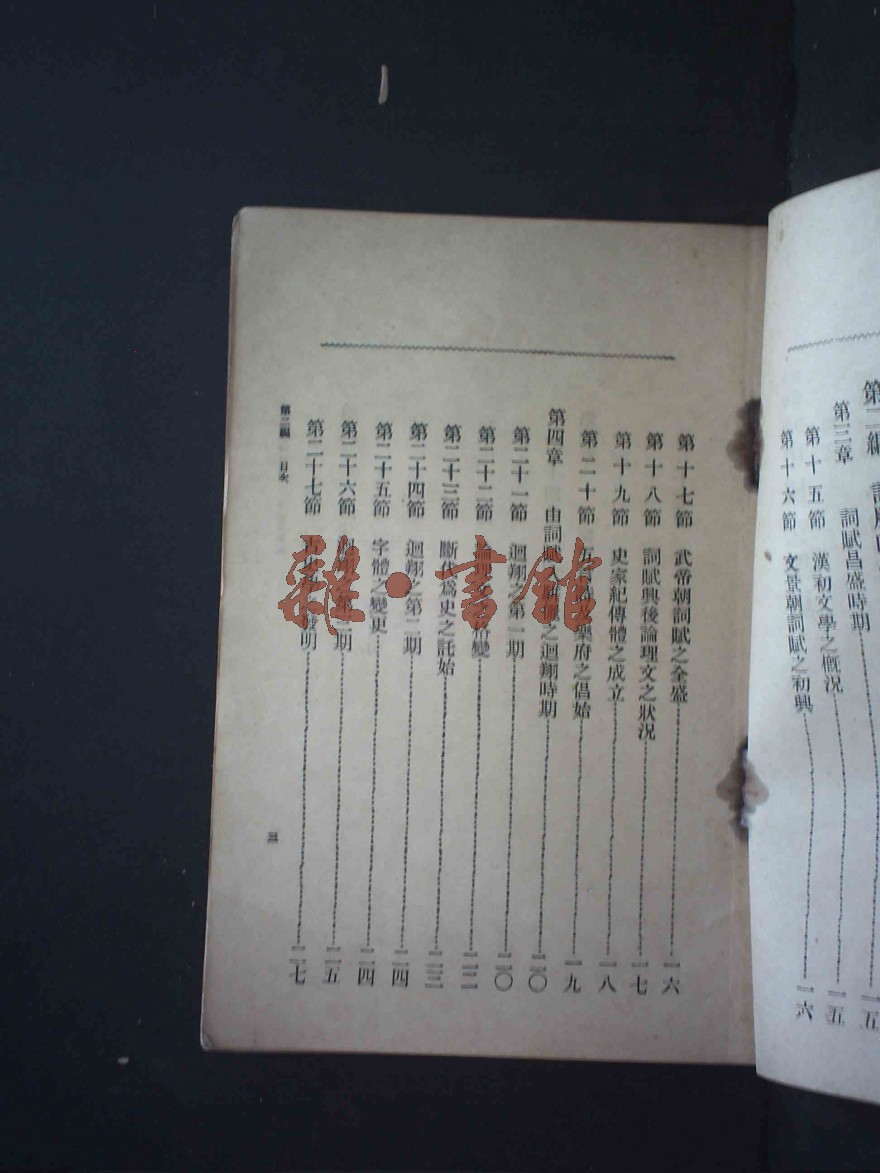 第二編
第三章 詞賦昌盛時期 一五
第十五節 漢初文學之概況 一五
第十六節 文景朝詞賦之初興 一六
第十七節 武帝朝詞賦之全盛 一六
第十八節 詞賦興後論理文之狀況 一七
第十九節 史家紀傳體之成立 一八
第二十節 樂府之倡始 一九
第四章 由詞賦 之迴翔時期 二〇
第二十一節 迴翔之第一期 二〇
第二十二節 變 二二
第二十三節 斷代為史之託始 二三
第二十四節 迴翔之第二期 二四
第二十五節 字體之變更 二四
第二十六節 第三期 二五
第二十七節 發明 二七
第二編 目次
三
雜·書館